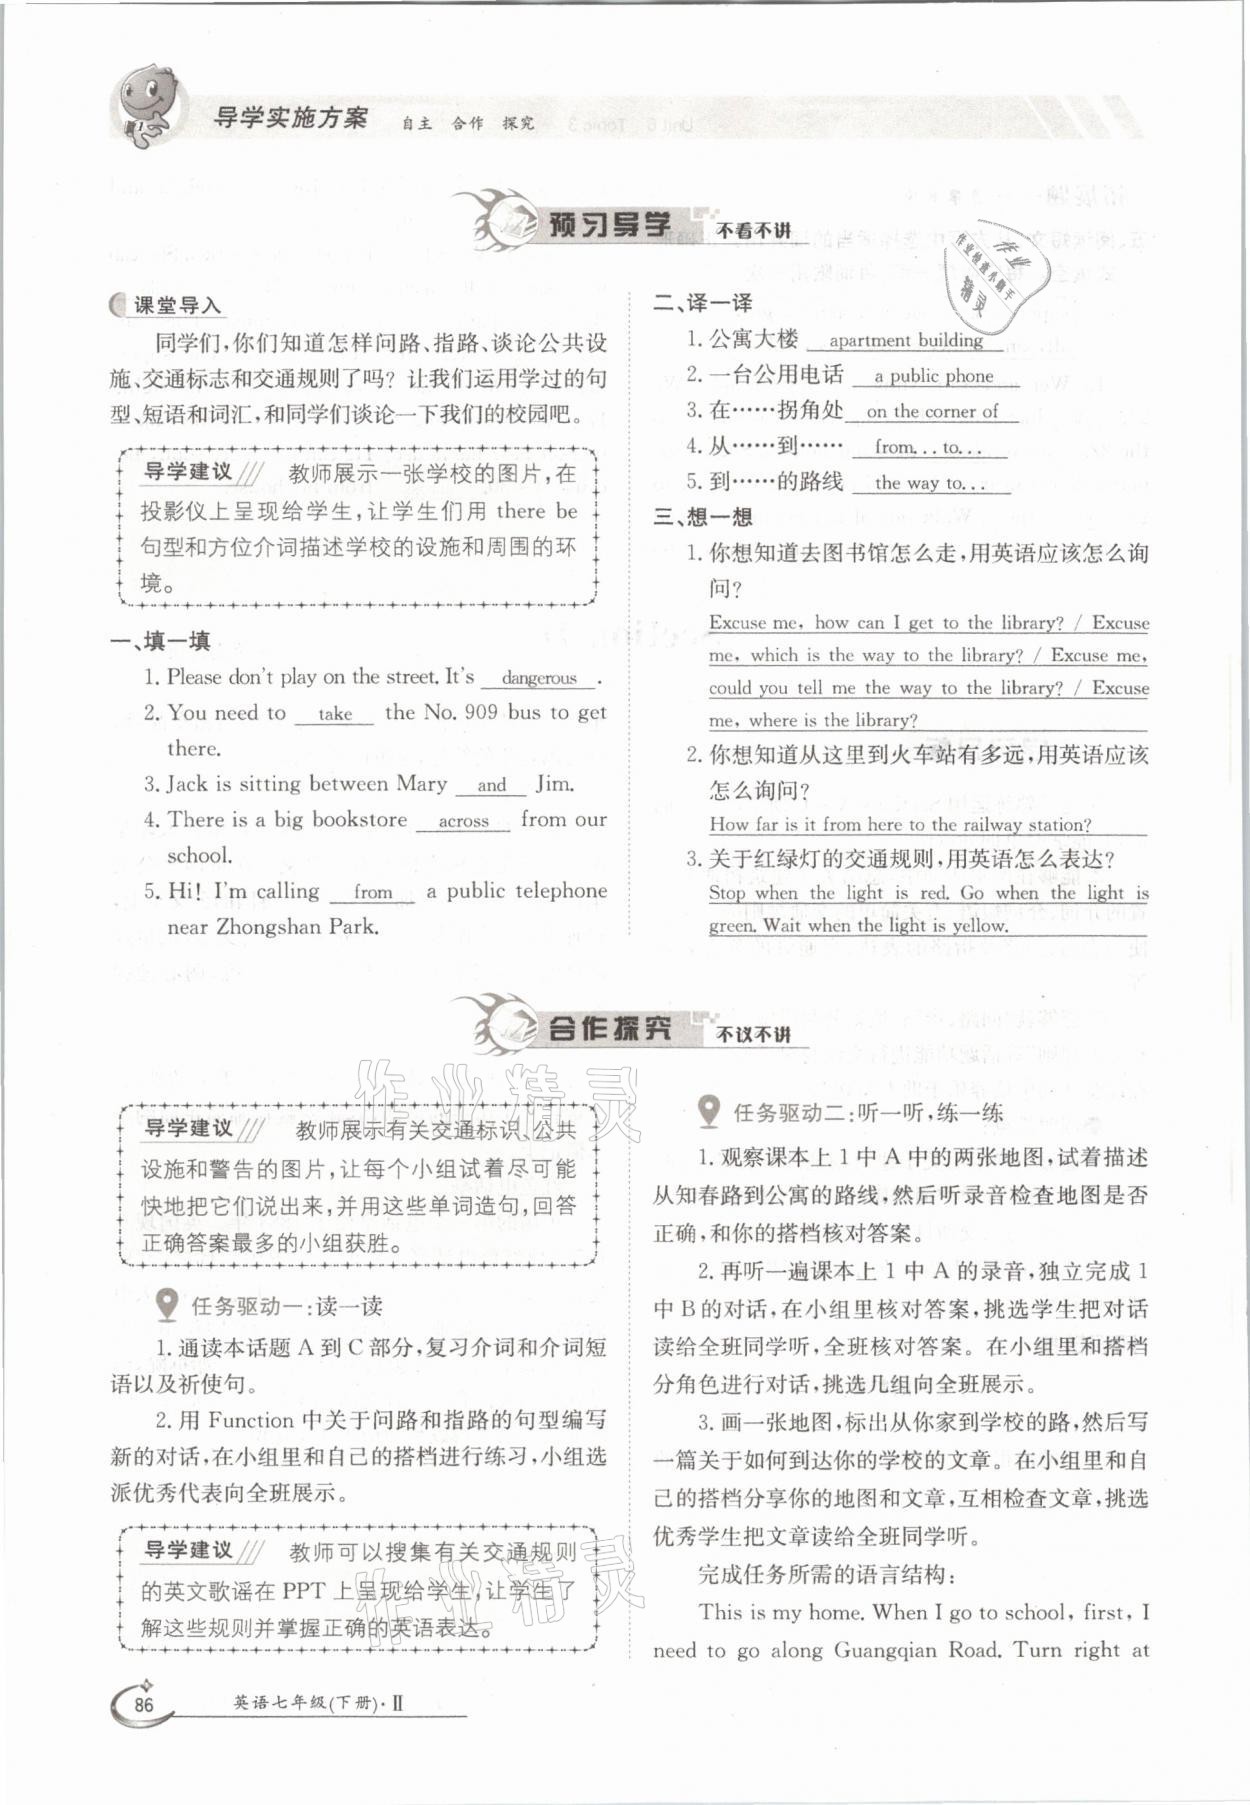 导学实施方案 自主 合作 探究
预习导学 不看不讲
课堂导入
同学们,你们知道怎样问路、指路、谈论公共设
施、交通标志和交通规则了吗? 让我们运用学过的句
型、短语和词汇,和同学们谈论一下我们的校园吧。
导学建议 教师展示一张学校的图片,在
投影仪上呈现给学生,让学生们用 there be
句型和方位介词描述学校的设施和周围的环
境。
一、填一填
1. Please don't play on the street. It's dangerous .
2. You need to take the No. 909 bus to get
there.
3. Jack is sitting between Mary and Jim.
4. There is a big bookstore across from our
school.
5. Hi! I'm calling from a public telephone
near Zhongshan Park.
二、译一译
1. 公寓大楼 apartment building
2. 一台公用电话 a public phone
3. 在……拐角处 on the corner of
4. 从……到…… from...to...
5. 到……的路线 the way to...
三、想一想
1. 你想知道去图书馆怎么走,用英语应该怎么询
问?
Excuse me, how can I get to the library? / Excuse
me, which is the way to the library? / Excuse me,
could you tell me the way to the library? / Excuse
me, where is the library?
2. 你想知道从这里到火车站有多远,用英语应该
怎么询问?
How far is it from here to the railway station?
3. 关于红绿灯的交通规则,用英语怎么表达?
Stop when the light is red. Go when the light is
green. Wait when the light is yellow.
合作探究 不议不讲
导学建议 教师展示有关交通标识、公共
设施和警告的图片,让每个小组试着尽可能
快地把它们说出来,并用这些单词造句,回答
正确答案最多的小组获胜。
任务驱动一:读一读
1. 通读本话题 A 到 C 部分,复习介词和介词短
语以及祈使句。
2. 用 Function 中关于问路和指路的句型编写
新的对话,在小组里和自己的搭档进行练习,小组选
派优秀代表向全班展示。
导学建议 教师可以搜集有关交通规则
的英文歌谣在 PPT 上呈现给学生,让学生了
解这些规则并掌握正确的英语表达。
任务驱动二:听一听,练一练
1. 观察课本上 1 中 A 中的两张地图,试着描述
从知春路到公寓的路线,然后听录音检查地图是否
正确,和你的搭档核对答案。
2. 再听一遍课本上 1 中 A 的录音,独立完成 1
中 B 的对话,在小组里核对答案,挑选学生把对话
读给全班同学听,全班核对答案。在小组里和搭档
分角色进行对话,挑选几组向全班展示。
3. 画一张地图,标出从你家到学校的路,然后写
一篇关于如何到达你的学校的文章。在小组里和自
己的搭档分享你的地图和文章,互相检查文章,挑选
优秀学生把文章读给全班同学听。
完成任务所需的语言结构:
This is my home. When I go to school, first, I
need to go along Guangqian Road. Turn right at
86 英语七年级(下册)·Ⅱ
作业精灵
作业检查小助手
作业精灵
作业精灵